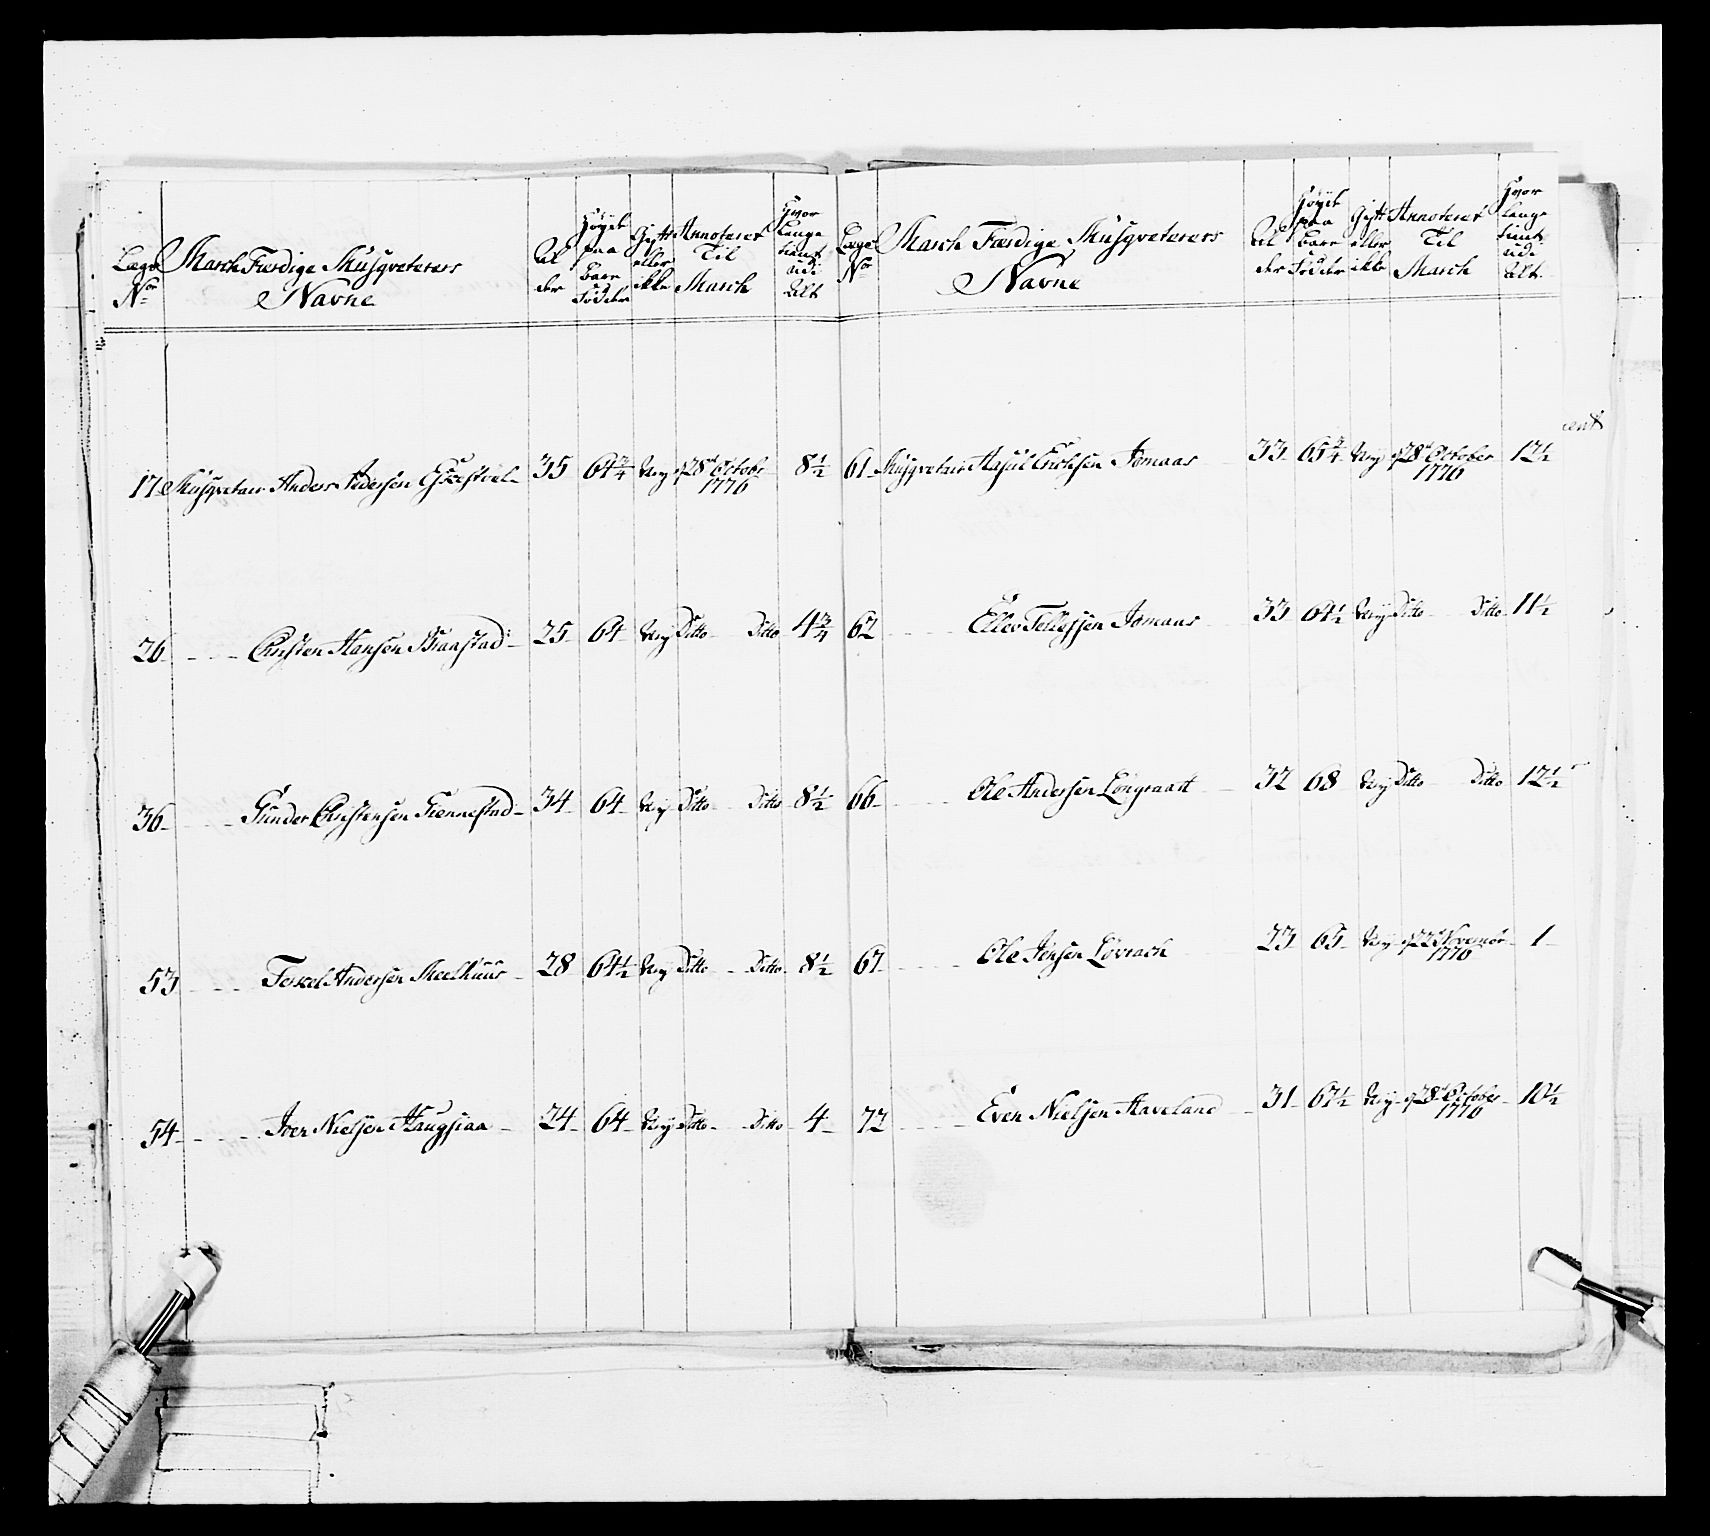 Lægs No
March Færdige Musqveterers Navne
Alder
Høyet paa baare Fødder
Gift eller ikke
Annoteret Til March
Hvor længe tient udi Alt
17 Musqveteer Anders Andersen 35 64 3/4 Ung d 28 Octobr 1776 8 1/2
26 - - - Christen Hansen Braastad 25 64 Ung Ditto Ditto 4 3/4
36 - - - Gunder Christensen Tiennestad 34 64 Ung Ditto Ditto 8 1/2
53 - - - Torkel Andersen Meelhuus 28 64 1/2 Ung Ditto Ditto 8 1/2
54 - - - Iver Nielsen Haugsiaa 24 64 Ung Ditto Ditto 4
Lægs No
March Færdige Musqveterers Navne
Alder
Høyet paa baare Fødder
Gift eller ikke
Annoteret Til March
Hvor længe tient udi Alt
61 Musqveteer Aasul Erichsen Jomaas 33 65 3/4 Ung d 28 October 1776 12 1/2
62 - - - Ellev Tellefsen Jomaas 33 64 1/2 Ung Ditto Ditto 11 1/2
66 - - - Ole Andersen 32 68 Ung Ditto Ditto 12 1/2
67 - - - Ole Jensen Løvraak 23 65 Ung d 22 Novembr 1776 1
72 - - - Even Nielsen Aaveland 31 67 1/2 Ung d 28 October 1776 10 1/2